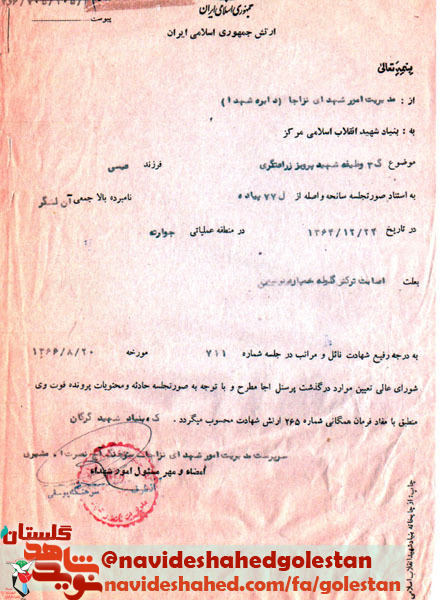 جمهوری اسلامی ایران
ارتش جمهوری اسلامی ایران
پیوست
بسمه تعالی
از : مدیریت امور شهدای نزاجا ( دایره شهدا )
به : بنیاد شهید انقلاب اسلامی مرکز
موضوع ک۳ وظیفه شهید پرویز زراعتگری فرزند عیسی
به استناد صورتجلسه سانحه واصله از ل ۷۷ پیاده نامبرده بالا جمعی آن لشگر
در تاریخ ۱۳۶۴/۱۲/۲۴ در منطقه عملیاتی جوارته
بعلت اصابت ترکش گلوله خمپاره
به درجه رفیع شهادت نائل و مراتب در جلسه شماره ۷۱۱ مورخه ۱۳۶۶/۸/۲۰
شورای عالی تعیین موارد درگذشت پرسنل اجا مطرح و با توجه به صورتجلسه حادثه ومحتویات پرونده فوت وی
منطبق با مفاد فرمان همگانی شماره ۲۶۵ ارتش شهادت محسوب میگردد . ک بنیاد شهید گرگان
سرپرست مدیریت امور شهدای نزاجا
امضاء و مهر مسئول امور شهداء
از طرف سرهنگ یوسفی
چاپ : از چاپخانه بنیاد شهید انقلاب اسلامی
نوید شاهد گلستان
@navideshahedgolestan
navideshahed.com/fa/golestan